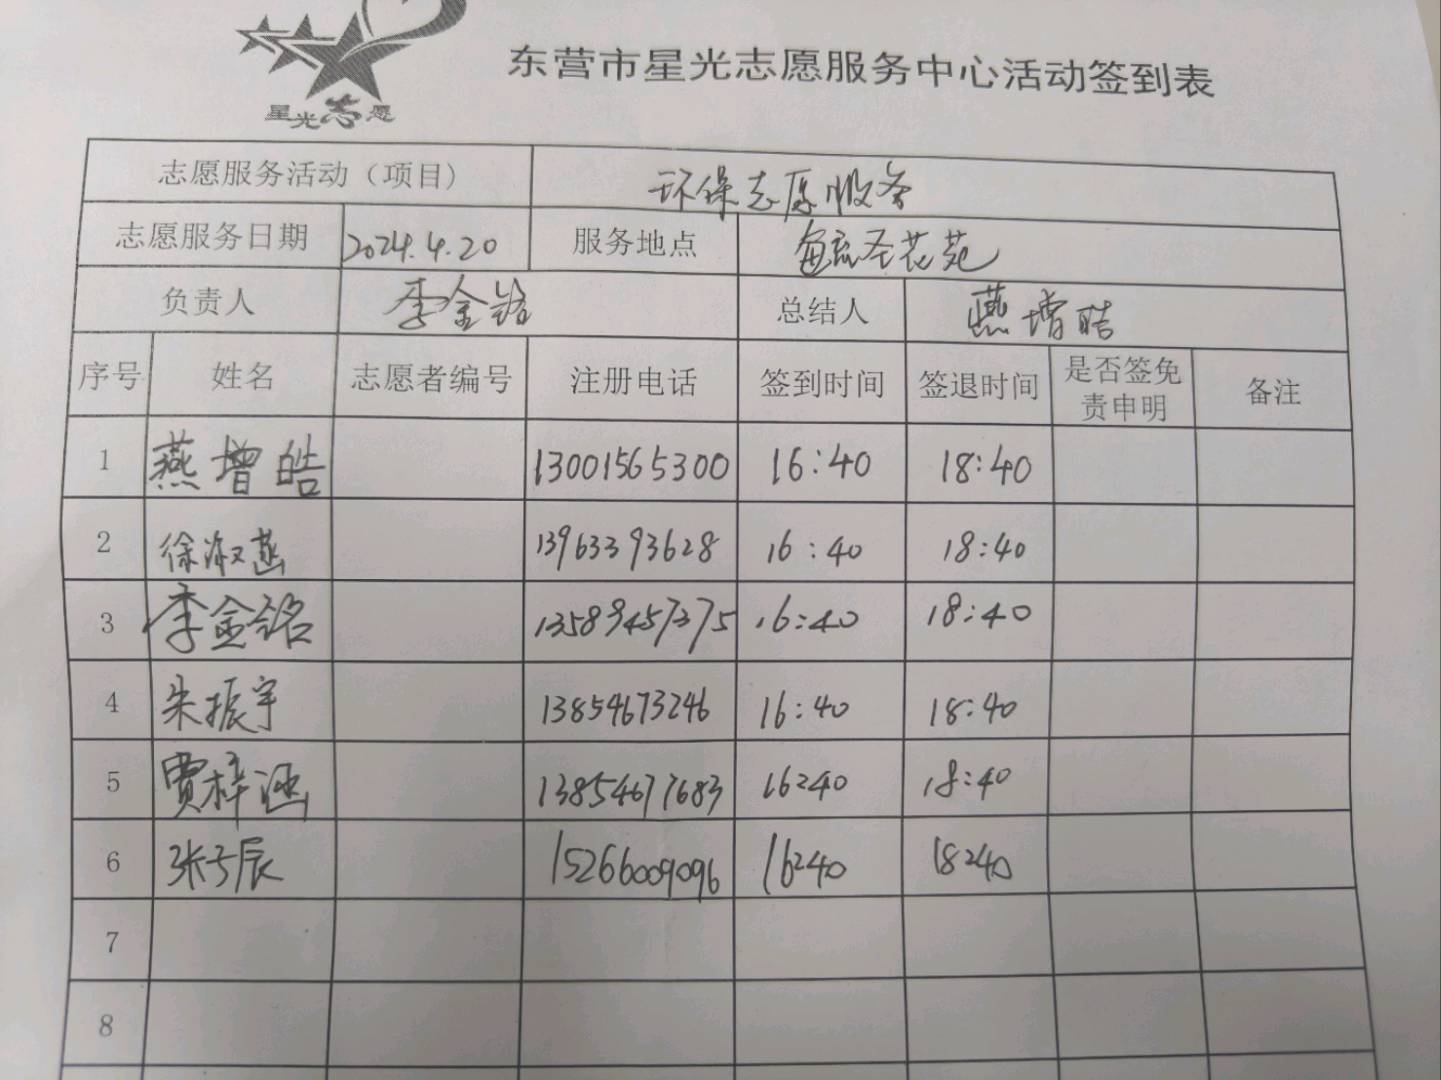 星光志愿
东营市星光志愿服务中心活动签到表
志愿服务活动（项目） 环保志愿服务
志愿服务日期 2024.4.20 服务地点 圣花苑
负责人 李金铭 总结人 燕增皓
序号 姓名 志愿者编号 注册电话 签到时间 签退时间 是否签免责申明 备注
1 燕增皓 13001565300 16:40 18:40
2 徐淑菡 13963393628 16:40 18:40
3 李金铭 13589457375 16:40 18:40
4 朱振宇 13854673246 16:40 18:40
5 贾梓涵 13854677683 16:40 18:40
6 张子辰 15266009096 16:40 18:40
7
8